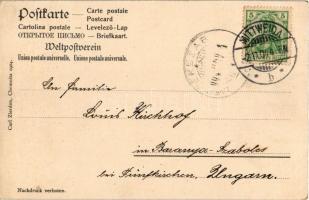 Postkarte — Carte postale
Postcard
Cartolina postale — Levelező-Lap
ОТКРЫТОЕ ПИСЬМО — Briefkaart.
Weltpostverein
Union postale universelle. Unione postale universale.
5 5
MITTWEIDA
b
An Familie
Louis Kirchhof
in Baranya-Szabolcs
bei Fünfkirchen, Ungarn.
Carl Zierdin, Chemnitz
Nachdruck verboten.